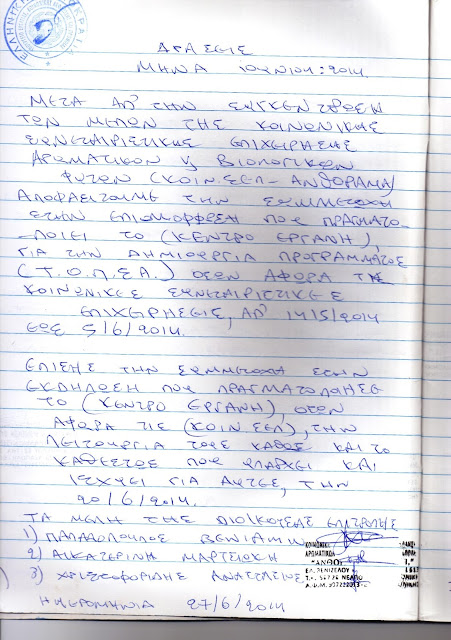 ΕΛΛΗΝΙΚΗ ΔΗΜΟΚΡΑΤΙΑ
ΔΡΑΣΕΙΣ
ΜΗΝΑ ΙΟΥΝΙΟΥ: 2014
ΜΕΤΑ ΑΠ' ΤΗΝ ΣΥΓΚΕΝΤΡΩΣΗ
ΤΩΝ ΜΕΛΩΝ ΤΗΣ ΚΟΙΝΩΝΙΚΗΣ
ΣΥΝΕΤΑΙΡΙΣΤΙΚΗΣ ΕΠΙΧΕΙΡΗΣΗΣ
ΑΡΩΜΑΤΙΚΩΝ & ΒΙΟΛΟΓΙΚΩΝ
ΦΥΤΩΝ (ΚΟΙΝ.ΣΕΠ- ΑΝΘΟΡΑΜΑ)
ΑΠΟΦΑΣΙΣΤΗΚΕ ΤΗΝ ΣΥΜΜΕΤΟΧΗ
ΣΤΗΝ ΕΠΙΜΟΡΦΩΣΗ ΠΟΥ ΠΡΑΓΜΑΤΟ-
-ΠΟΙΕΙ ΤΟ (ΚΕΝΤΡΟ ΕΡΓΑΝΗ),
ΓΙΑ ΤΗΝ ΔΗΜΙΟΥΡΓΙΑ ΠΡΟΓΡΑΜΜΑΤΟΣ
(Τ.Ο.Π.Σ.Α.) ΟΣΟΝ ΑΦΟΡΑ ΤΙΣ
ΚΟΙΝΩΝΙΚΕΣ ΣΥΝΕΤΑΙΡΙΣΤΙΚΕΣ
ΕΠΙΧΕΙΡΗΣΕΙΣ, ΑΠ' 14/5/2014
ΕΩΣ 5/6/2014.
ΕΠΙΣΗΣ ΤΗΝ ΣΥΜΜΕΤΟΧΗ ΣΤΗΝ
ΕΚΔΗΛΩΣΗ ΠΟΥ ΠΡΑΓΜΑΤΟΠΟΙΗΣΕ
ΤΟ (ΚΕΝΤΡΟ ΕΡΓΑΝΗ), ΟΣΟΝ
ΑΦΟΡΑ ΤΙΣ (ΚΟΙΝ.ΣΕΠ), ΤΗΝ
ΛΕΙΤΟΥΡΓΙΑ ΤΟΥΣ ΚΑΘΩΣ ΚΑΙ ΤΟ
ΚΑΘΕΣΤΩΣ ΠΟΥ ΥΠΑΡΧΕΙ ΚΑΙ
ΙΣΧΥΕΙ ΓΙΑ ΑΥΤΕΣ, ΤΗΝ
20/6/2014.
ΤΑ ΜΕΛΗ ΤΗΣ ΔΙΟΙΚΟΥΣΑΣ ΕΠΙΤΡΟΠΗΣ
1) ΠΑΠΑΔΟΠΟΥΛΟΣ ΒΕΝΙΑΜΙΝ
2) ΑΙΚΑΤΕΡΙΝΗ ΜΑΡΤΣΙΟΧΗ
3) ΧΡΙΣΤΟΦΟΡΙΔΗΣ ΑΝΑΣΤΑΣΙΟΣ
ΚΟΙΝΩΝΙΚΗ
ΑΡΩΜΑΤΙΚΩΝ
"ΑΝΘΟ
ΕΛ. ΒΕΝΙΖΕΛΟΥ
Τ.Κ. 56728 ΝΕΑΠΟ
Α.Φ.Μ.
ΗΜΕΡΟΜΗΝΙΑ 27/6/2014